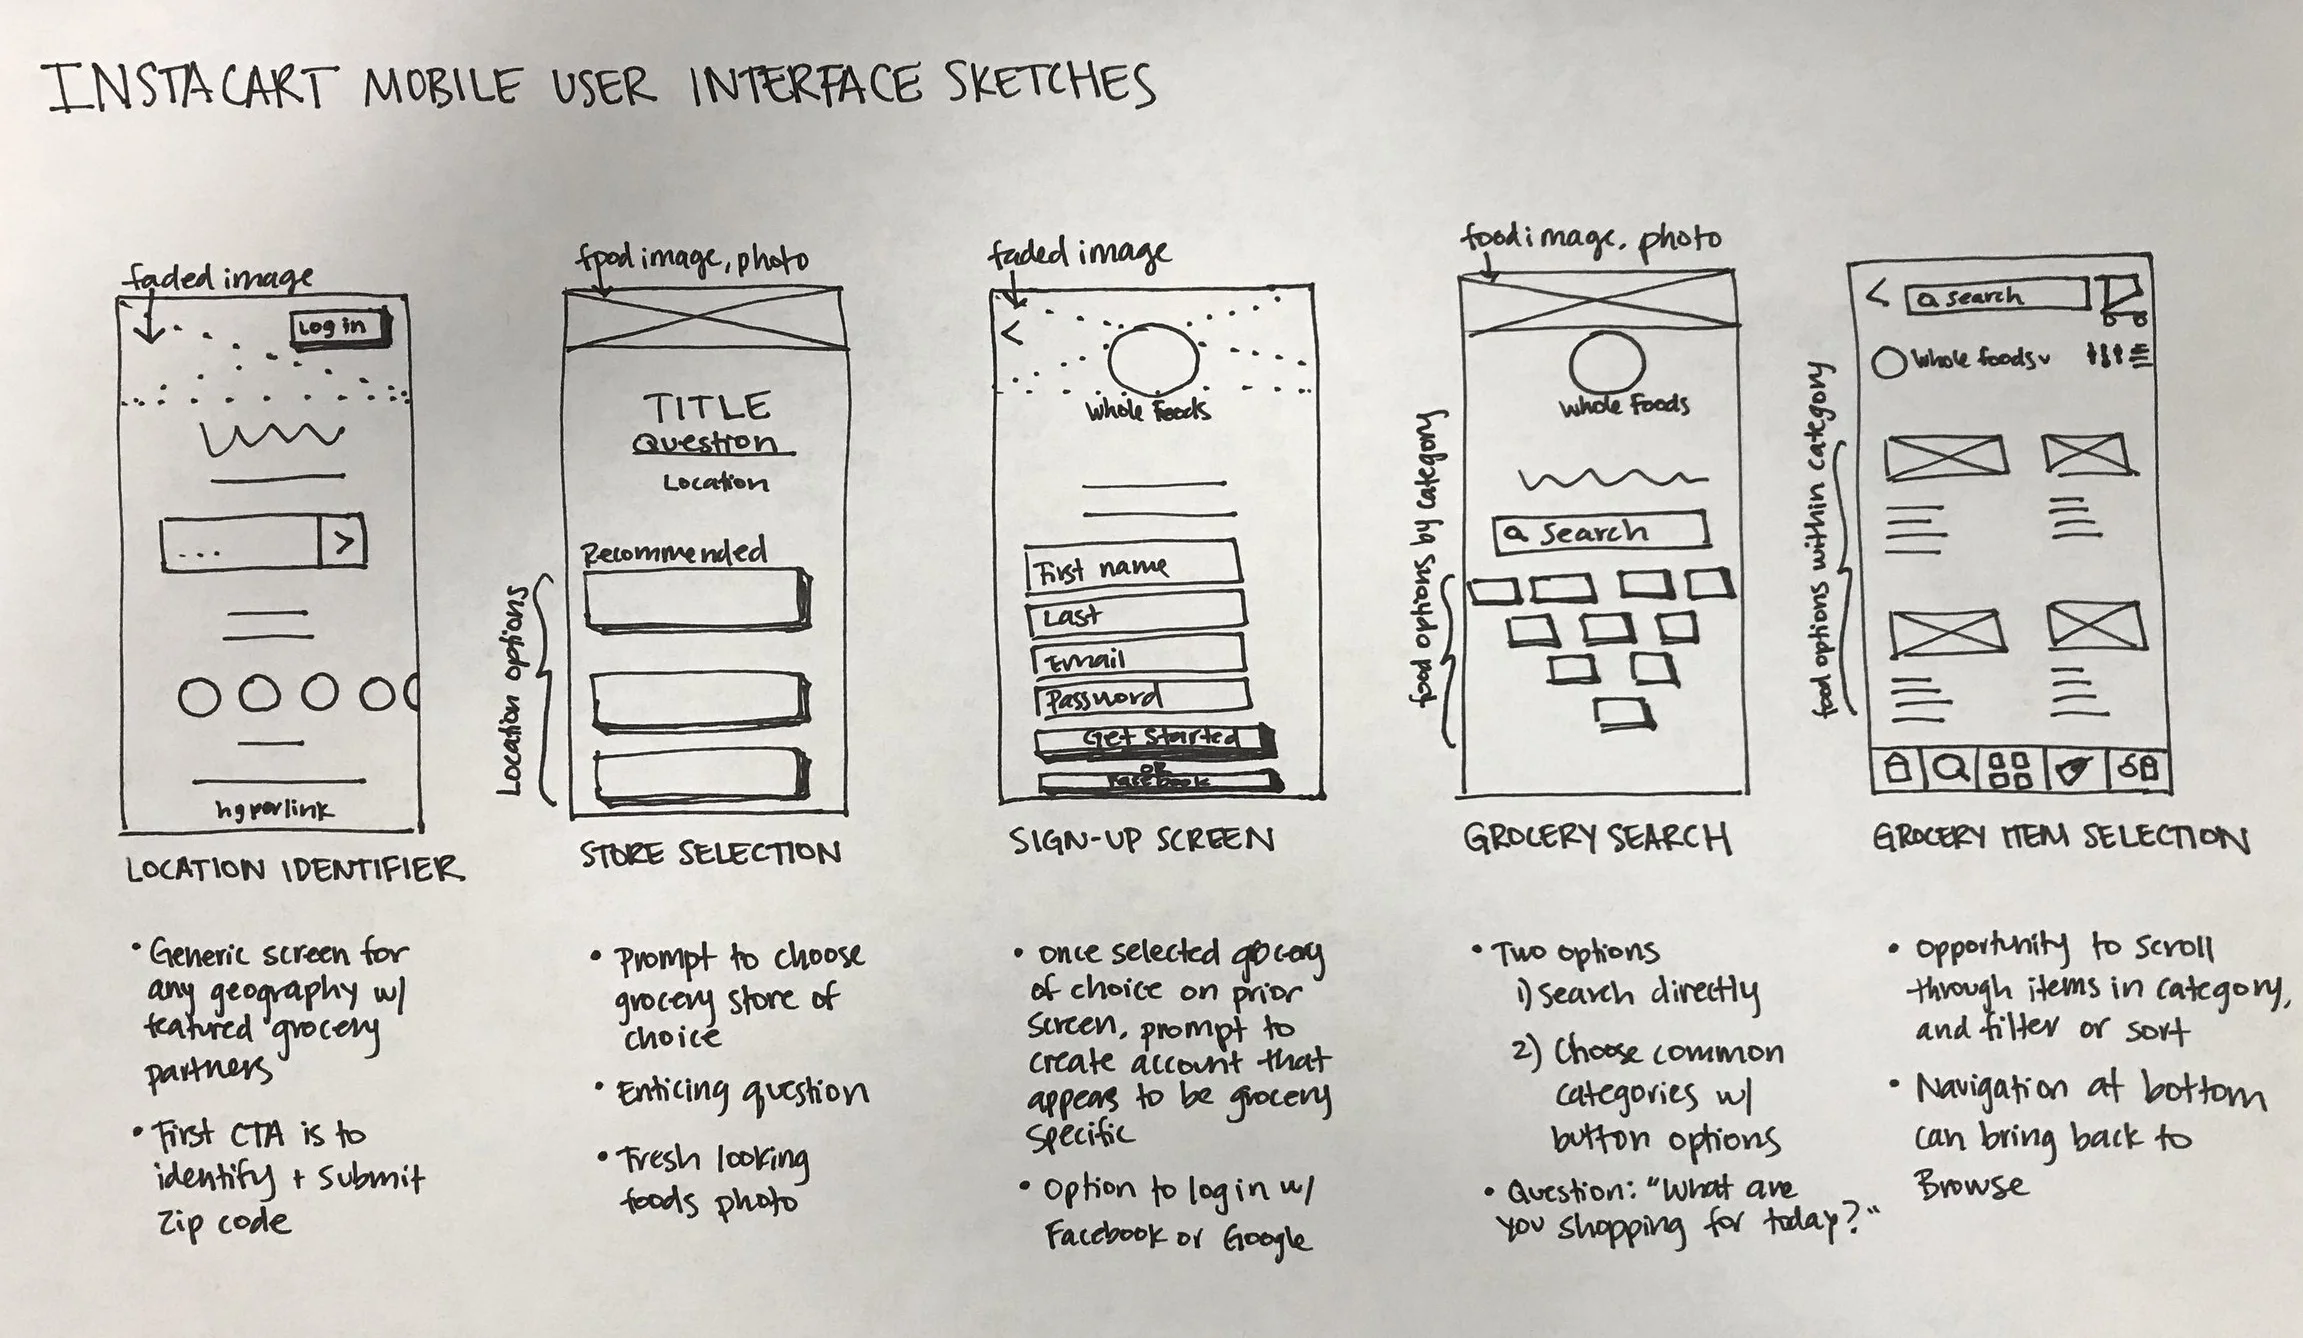 INSTACART MOBILE USER INTERFACE SKETCHES
faded image
Log in
...
>
hyperlink
LOCATION IDENTIFIER
• Generic screen for
any geography w/
featured grocery
partners
• First CTA is to
identify + submit
Zip code
food image, photo
TITLE
Question
Location
Recommended
Location options
STORE SELECTION
• Prompt to choose
grocery store of
choice
• Enticing question
• Fresh looking
foods photo
faded image
<
Whole Foods
First name
Last
Email
Password
Get Started
OR
Facebook
SIGN-UP SCREEN
• Once selected grocery
of choice on prior
screen, prompt to
create account that
appears to be grocery
specific
• Option to log in w/
Facebook or Google
food image, photo
Whole Foods
Search
food options by category
GROCERY SEARCH
• Two options
1) Search directly
2) Choose common
categories w/
button options
• Question: "What are
you shopping for today?"
<
Search
Whole foods v
food options within category
GROCERY ITEM SELECTION
• Opportunity to scroll
through items in category,
and filter or sort
• Navigation at bottom
can bring back to
Browse